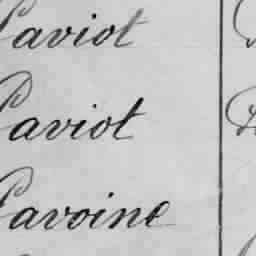 Paviot
Paviot
Pavoine